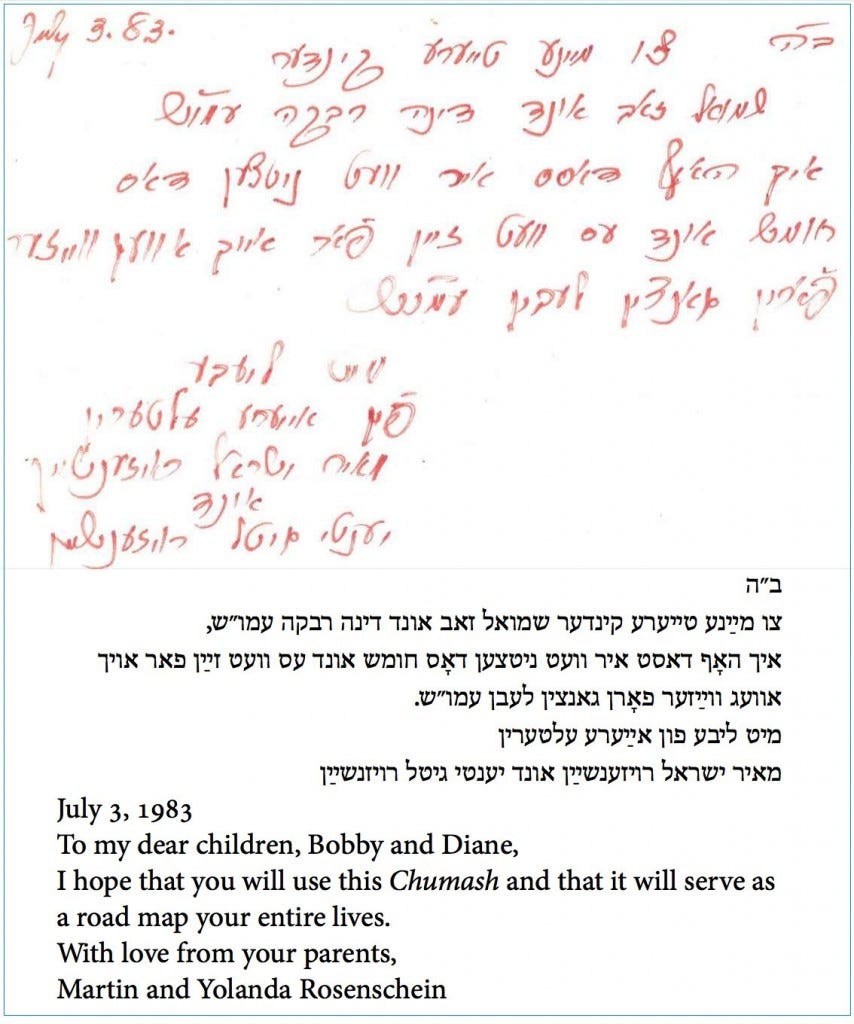 July 3. 83.
ב״ה צו מיינע טייערע קינדער
שמואל זאב אונד דינה רבקה עמו״ש
איך האף דאסט איר וועט ניטצען דאס
חומש אונד עס וועט זיין פֿאר אייך אוועג ווייזער
פֿארין גאנצין לעבין עמו״ש
מיט ליעבע
פֿון אייערע עלטערין
מאיר ישראל רויזענשיין
אונד
יענטי גיטל רויזענשיין
ב״ה
צו מײַנע טייערע קינדער שמואל זאב אונד דינה רבקה עמו״ש,
איך האָף דאסט איר וועט ניטצען דאָס חומש אונד עס וועט זײַן פאר אויך
אוועג ווײַזער פאָרן גאנצין לעבן עמו״ש.
מיט ליבע פון אײַערע עלטערין
מאיר ישראל רויזענשײַן אונד יענטי גיטל רויזנשײַן
July 3, 1983
To my dear children, Bobby and Diane,
I hope that you will use this Chumash and that it will serve as
a road map your entire lives.
With love from your parents,
Martin and Yolanda Rosenschein